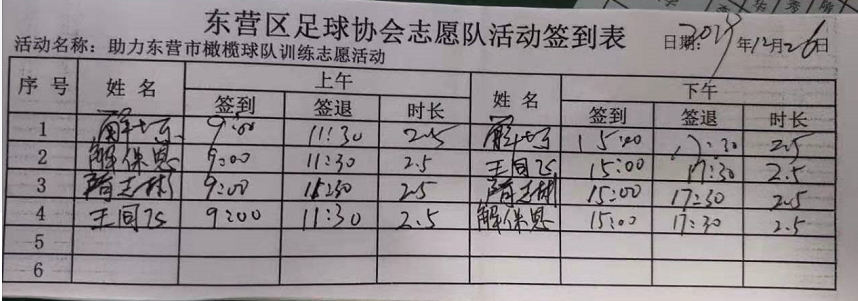 东营区足球协会志愿队活动签到表
活动名称：助力东营市橄榄球队训练志愿活动 日期: 年12月26日
序号 姓名 上午 姓名 下午
签到 签退 时长 签到 签退 时长
1 9:00 11:30 2.5 15:00 17:30 2.5
2 解保恩 9:00 11:30 2.5 王同 15:00 17:30 2.5
3 隋志彬 9:00 2.5 隋志彬 15:00 17:30 2.5
4 王同 9:00 11:30 2.5 解保恩 15:00 17:30 2.5
5
6